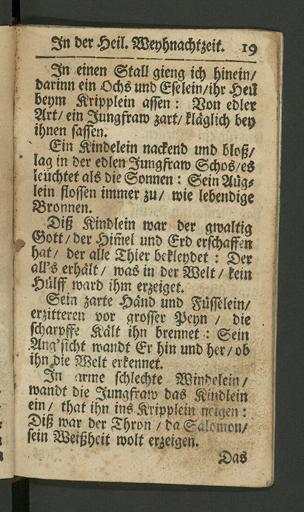 In der Heil. Weyhnachtzeit. 19
In einen Stall gieng ich hinein/
darinn ein Ochs und Eselein/ihr Heu
beym Kripplein assen: Von edler
Art/ ein Jungfraw zart/ kläglich bey
ihnen sassen.
Ein Kindelein nackend und bloß/
lag in der edlen Jungfraw Schos/es
leuchtet als die Sonnen: Sein Aüg-
lein flossen immer zu/ wie lebendige
Bronnen.
Diß Kindlein war der gwaltig
Gott/ der Him̃el und Erd erschaffen
hat/ der alle Thier bekleydet: Der
all's erhält/ was in der Welt/ kein
Hülff ward ihm erzeiget.
Sein zarte Händ und Füsselein/
erzitteren vor grosser Peyn / die
scharpffe Kält ihn brennet: Sein
Ang'sicht wandt Er hin und her/ ob
ihn die Welt erkennet.
In arme schlechte Windelein/
wandt die Jungfraw das Kindlein
ein/ that ihn ins Kripplein neigen:
Diß war der Thron/ da Salomon/
sein Weißheit wolt erzeigen.
Das